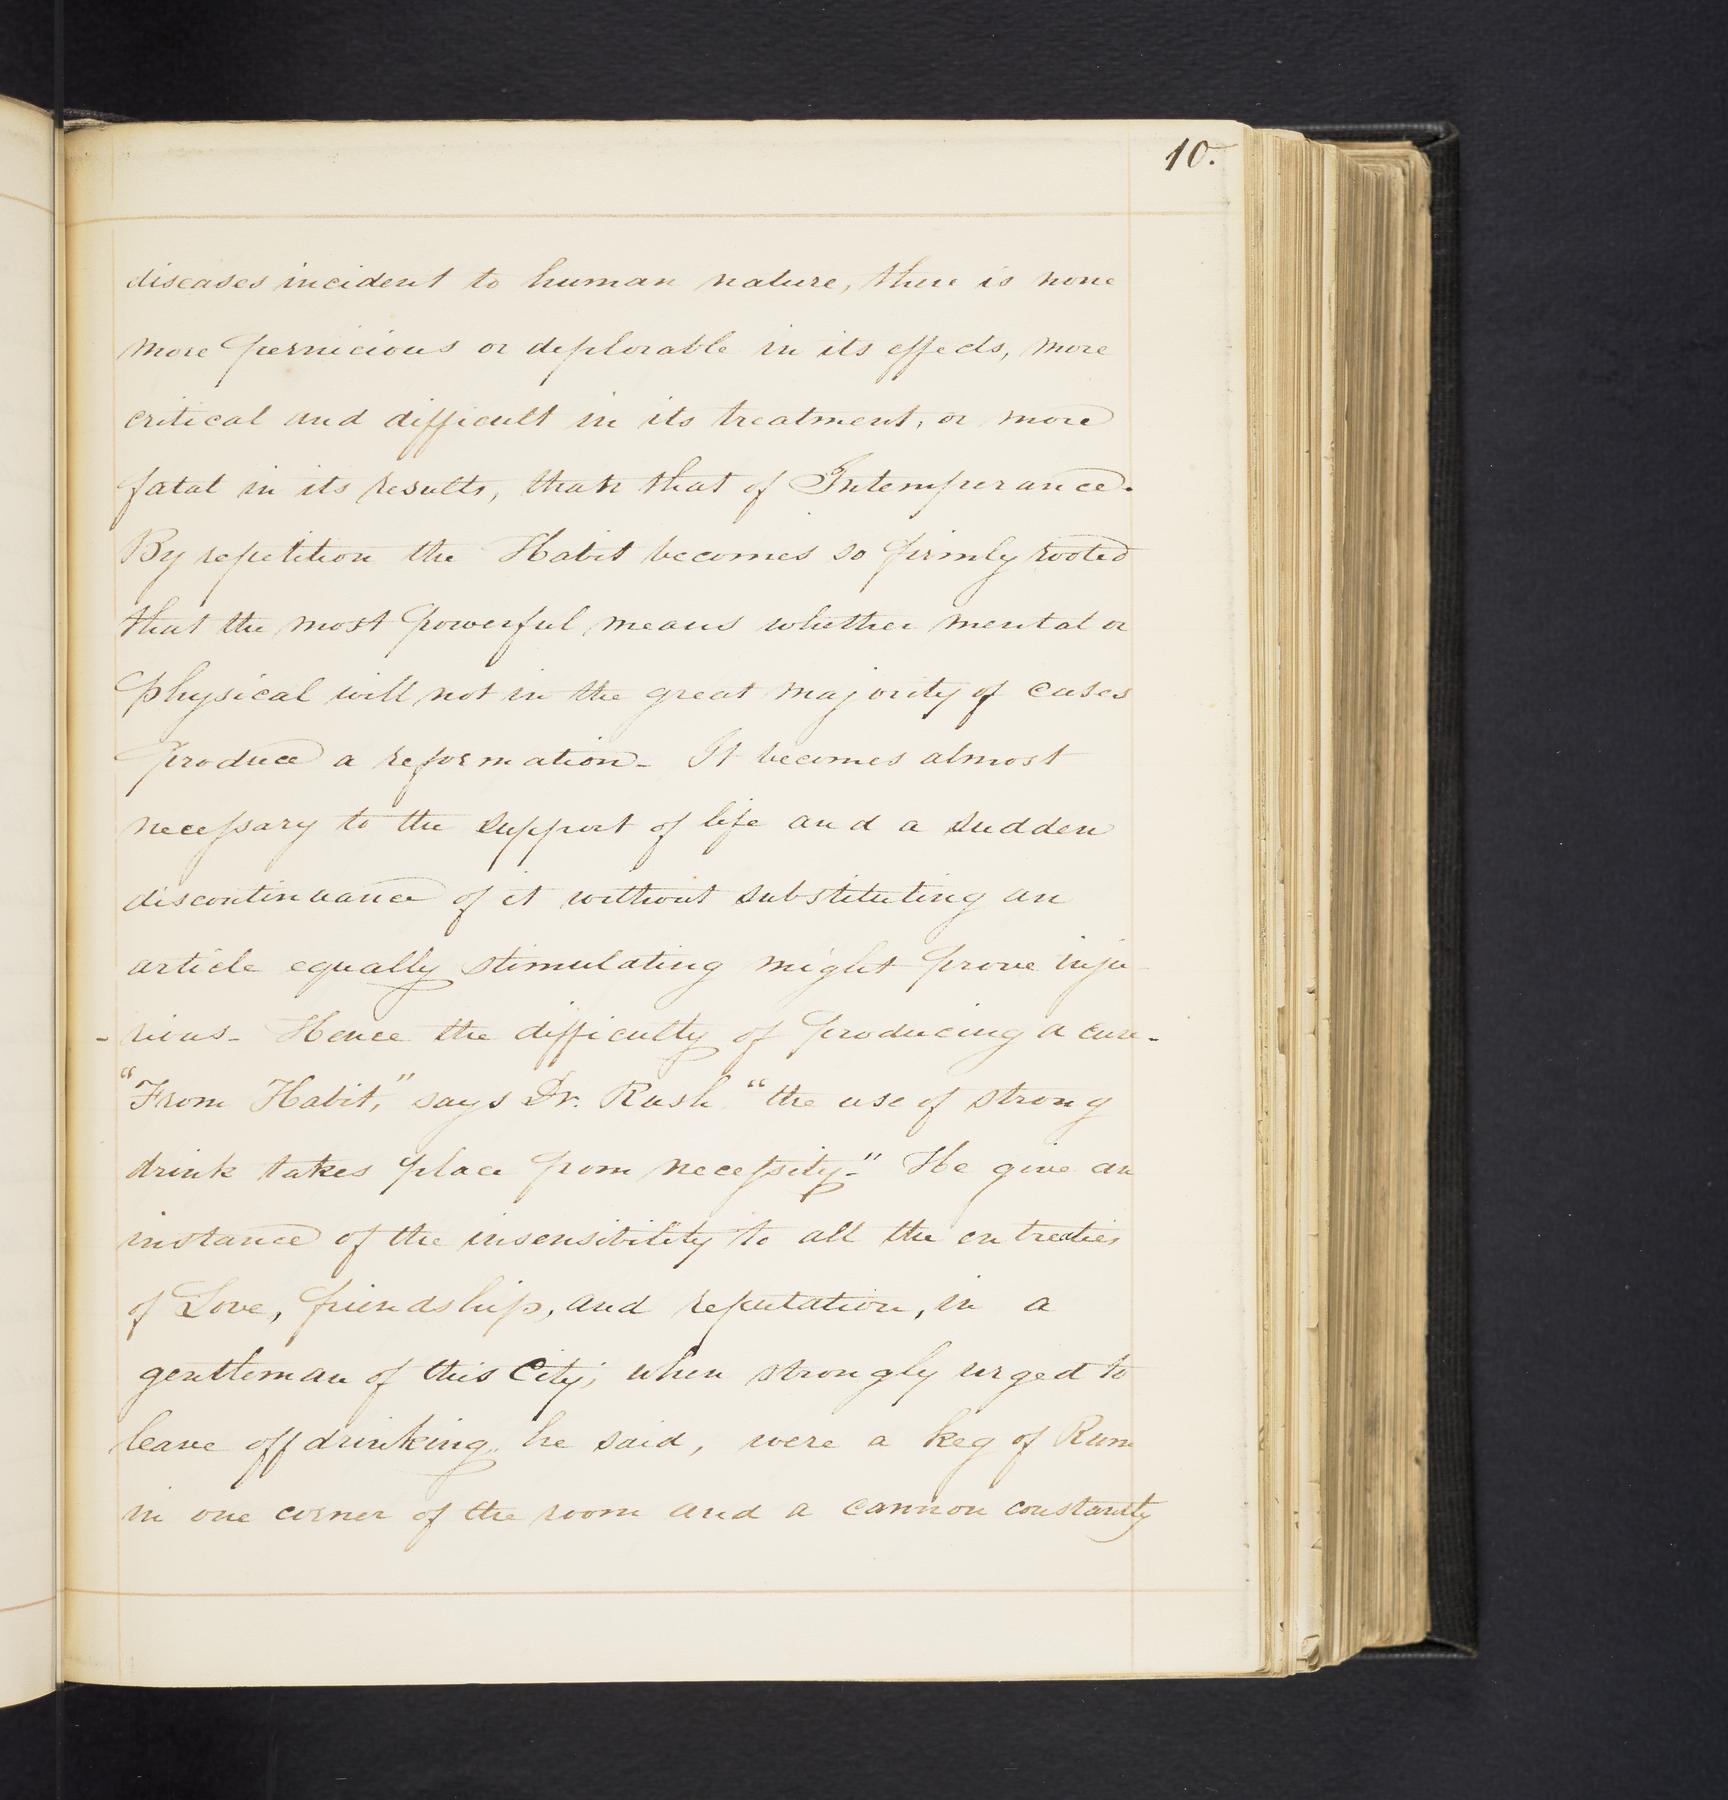 10.
diseases incident to human nature, there is none
more pernicious or deplorable in its effects, more
critical and difficult in its treatment, or more
fatal in its results, than that of Intemperance.
By repetition the Habit becomes so firmly rooted
that the most powerful means whether mental or
physical will not in the great majority of cases
produce a reformation - It becomes almost
necessary to the support of life and a sudden
discontinuance of it without substituting an
article equally stimulating might prove inju
-rious - Hence the difficulty of producing a cure -
"From Habit," says Dr. Rush "the use of strong
drink takes place from necessity." He give an
instance of the insensibility to all the entreaties
of Love, friendship, and reputation, in a
gentleman of this City; when strongly urged to
leave off drinking, he said, were a keg of Rum
in one corner of the room and a cannon constantly